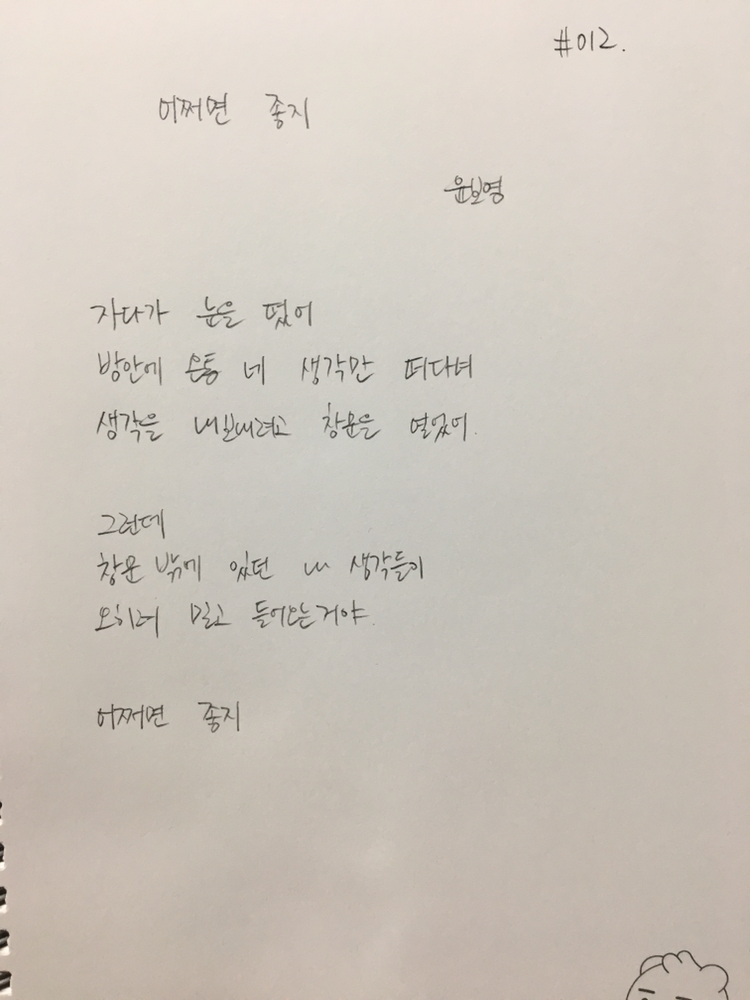 #012.
어쩌면 좋지
윤보영
자다가 눈을 떴어
방안에 온통 네 생각만 떠다녀
생각을 내보내려고 창문을 열었어.
그런데
창문 밖에 있던 네 생각들이
오히려 밀고 들어오는거야.
어쩌면 좋지